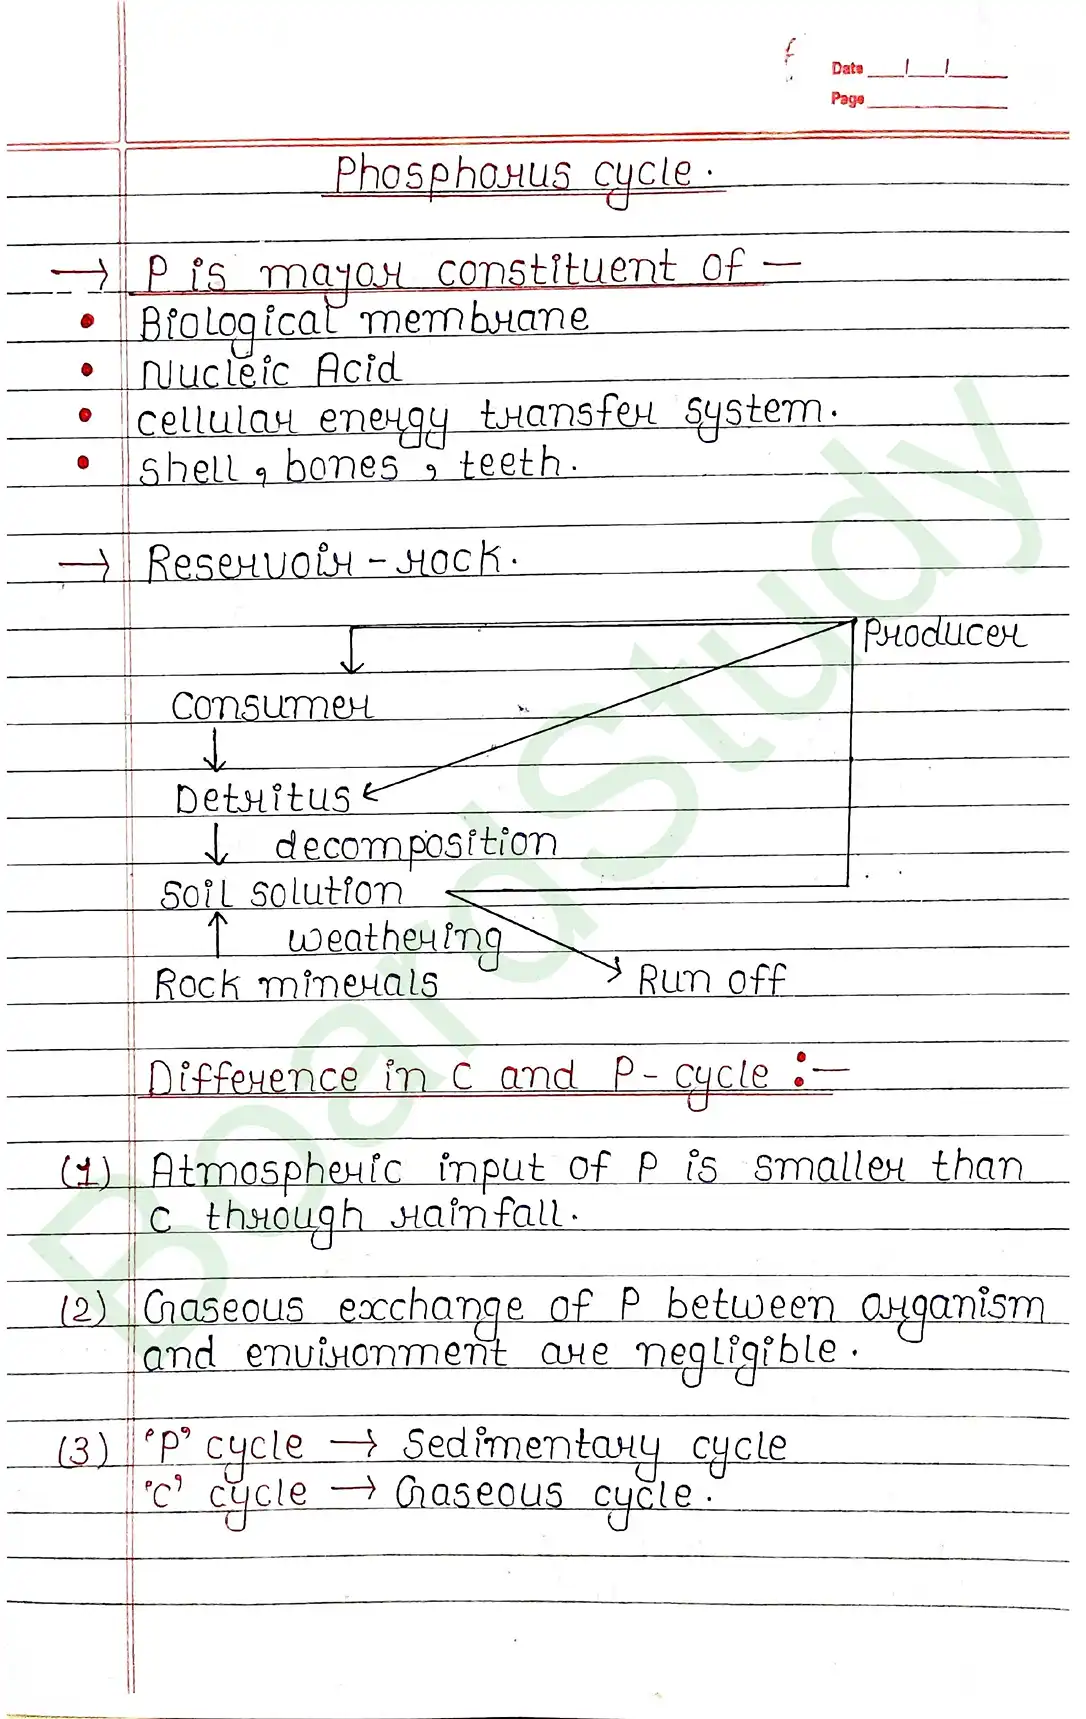 Date
Page
Phosphorus cycle.
→ P is mayor constituent of —
• Biological membrane
• Nucleic Acid
• cellular energy transfer system.
• shell, bones, teeth.
→ Reservoir - rock.
Producer
Consumer
↓
Detritus
↓ decomposition
Soil solution
↑ weathering
Rock minerals
Run off
Difference in C and P- cycle :—
(1) Atmospheric input of P is smaller than
C through rainfall.
(2) Gaseous exchange of P between organism
and environment are negligible.
(3) 'P' cycle → Sedimentary cycle
'C' cycle → Gaseous cycle.
BoardStudy